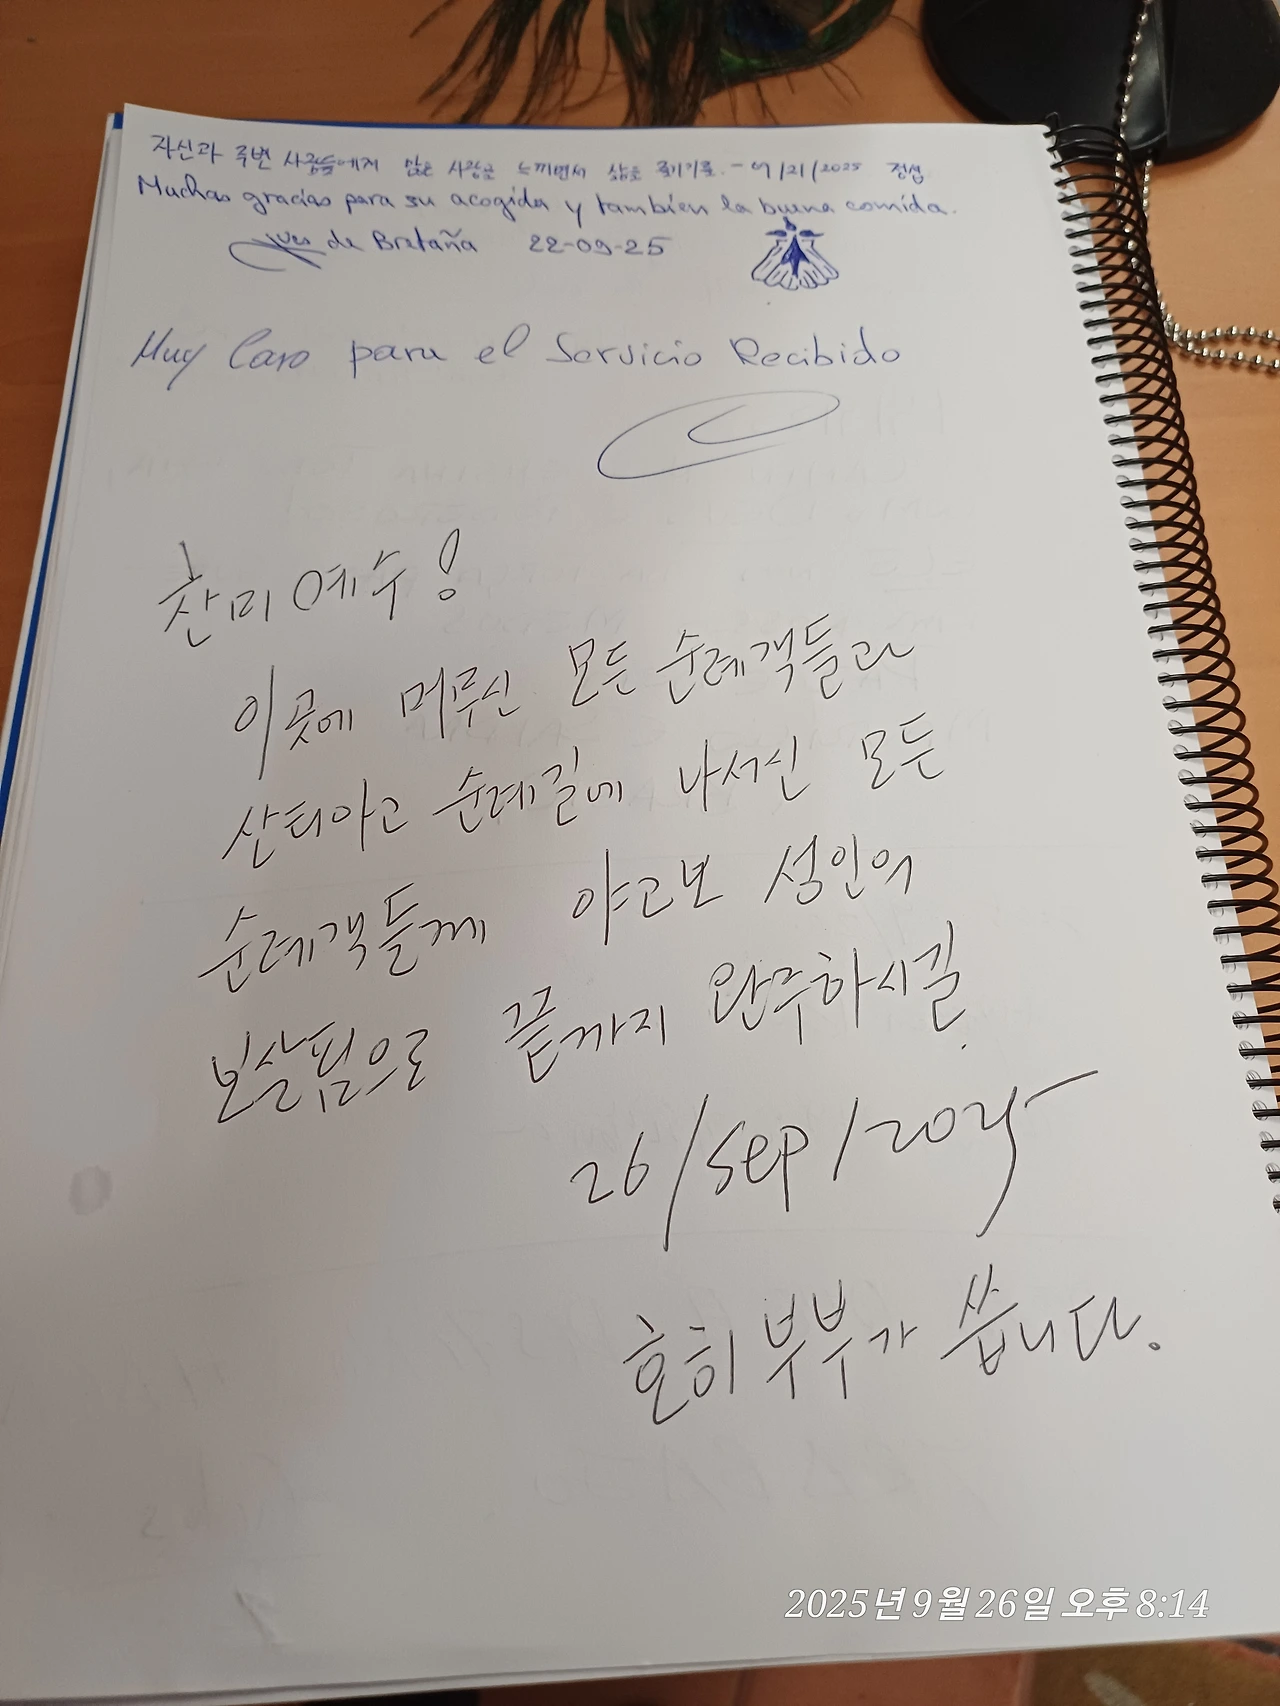 자신과 주변 사람들에게 많은 사랑을 느끼면서 삶을 즐기기를. - 09/21/2025 정섭
Muchas gracias para su acogida y tambien la buena comida.
Yves de Bretaña 22-09-25
Muy Caro para el Servicio Recibido
찬미 예수!
이곳에 머무신 모든 순례객들과
산티아고 순례길에 나서신 모든
순례객들께 야고보 성인의
보살핌으로 끝까지 완주하시길.
26/sep/2025
호히 부부가 씁니다.
2025년 9월 26일 오후 8:14